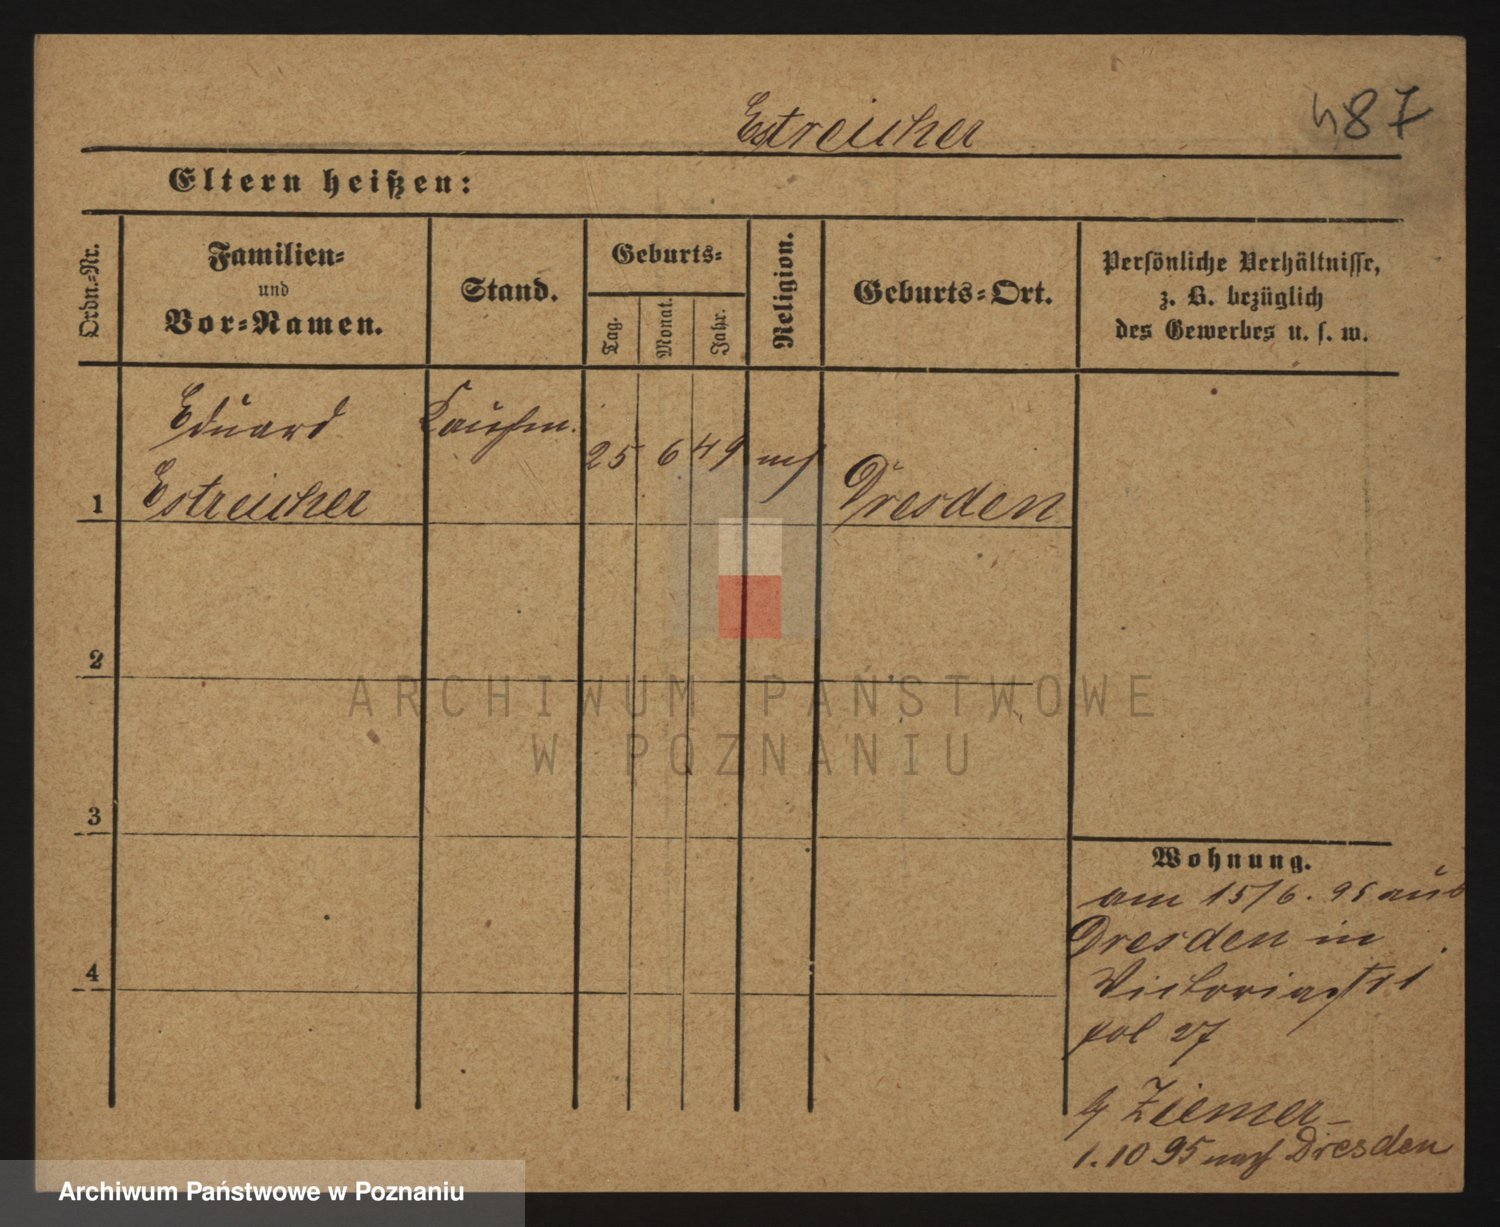 Estreicher
487
Eltern heißen:
Ordn.-Nr.
Familien-
und
Vor-Namen.
Stand.
Geburts-
Tag.
Monat.
Jahr.
Religion.
Geburts-Ort.
Persönliche Verhältnisse,
z. B. bezüglich
des Gewerbes u. s. w.
1
Eduard
Estreicher
Kaufm.
25
6
49
Dresden
2
3
4
Wohnung.
am 15/6. 95 aus
Dresden in
Victoriastr 1
pol 27
b/ Ziemer
1.10 95 nach Dresden
ARCHIWUM PAŃSTWOWE
W POZNANIU
Archiwum Państwowe w Poznaniu